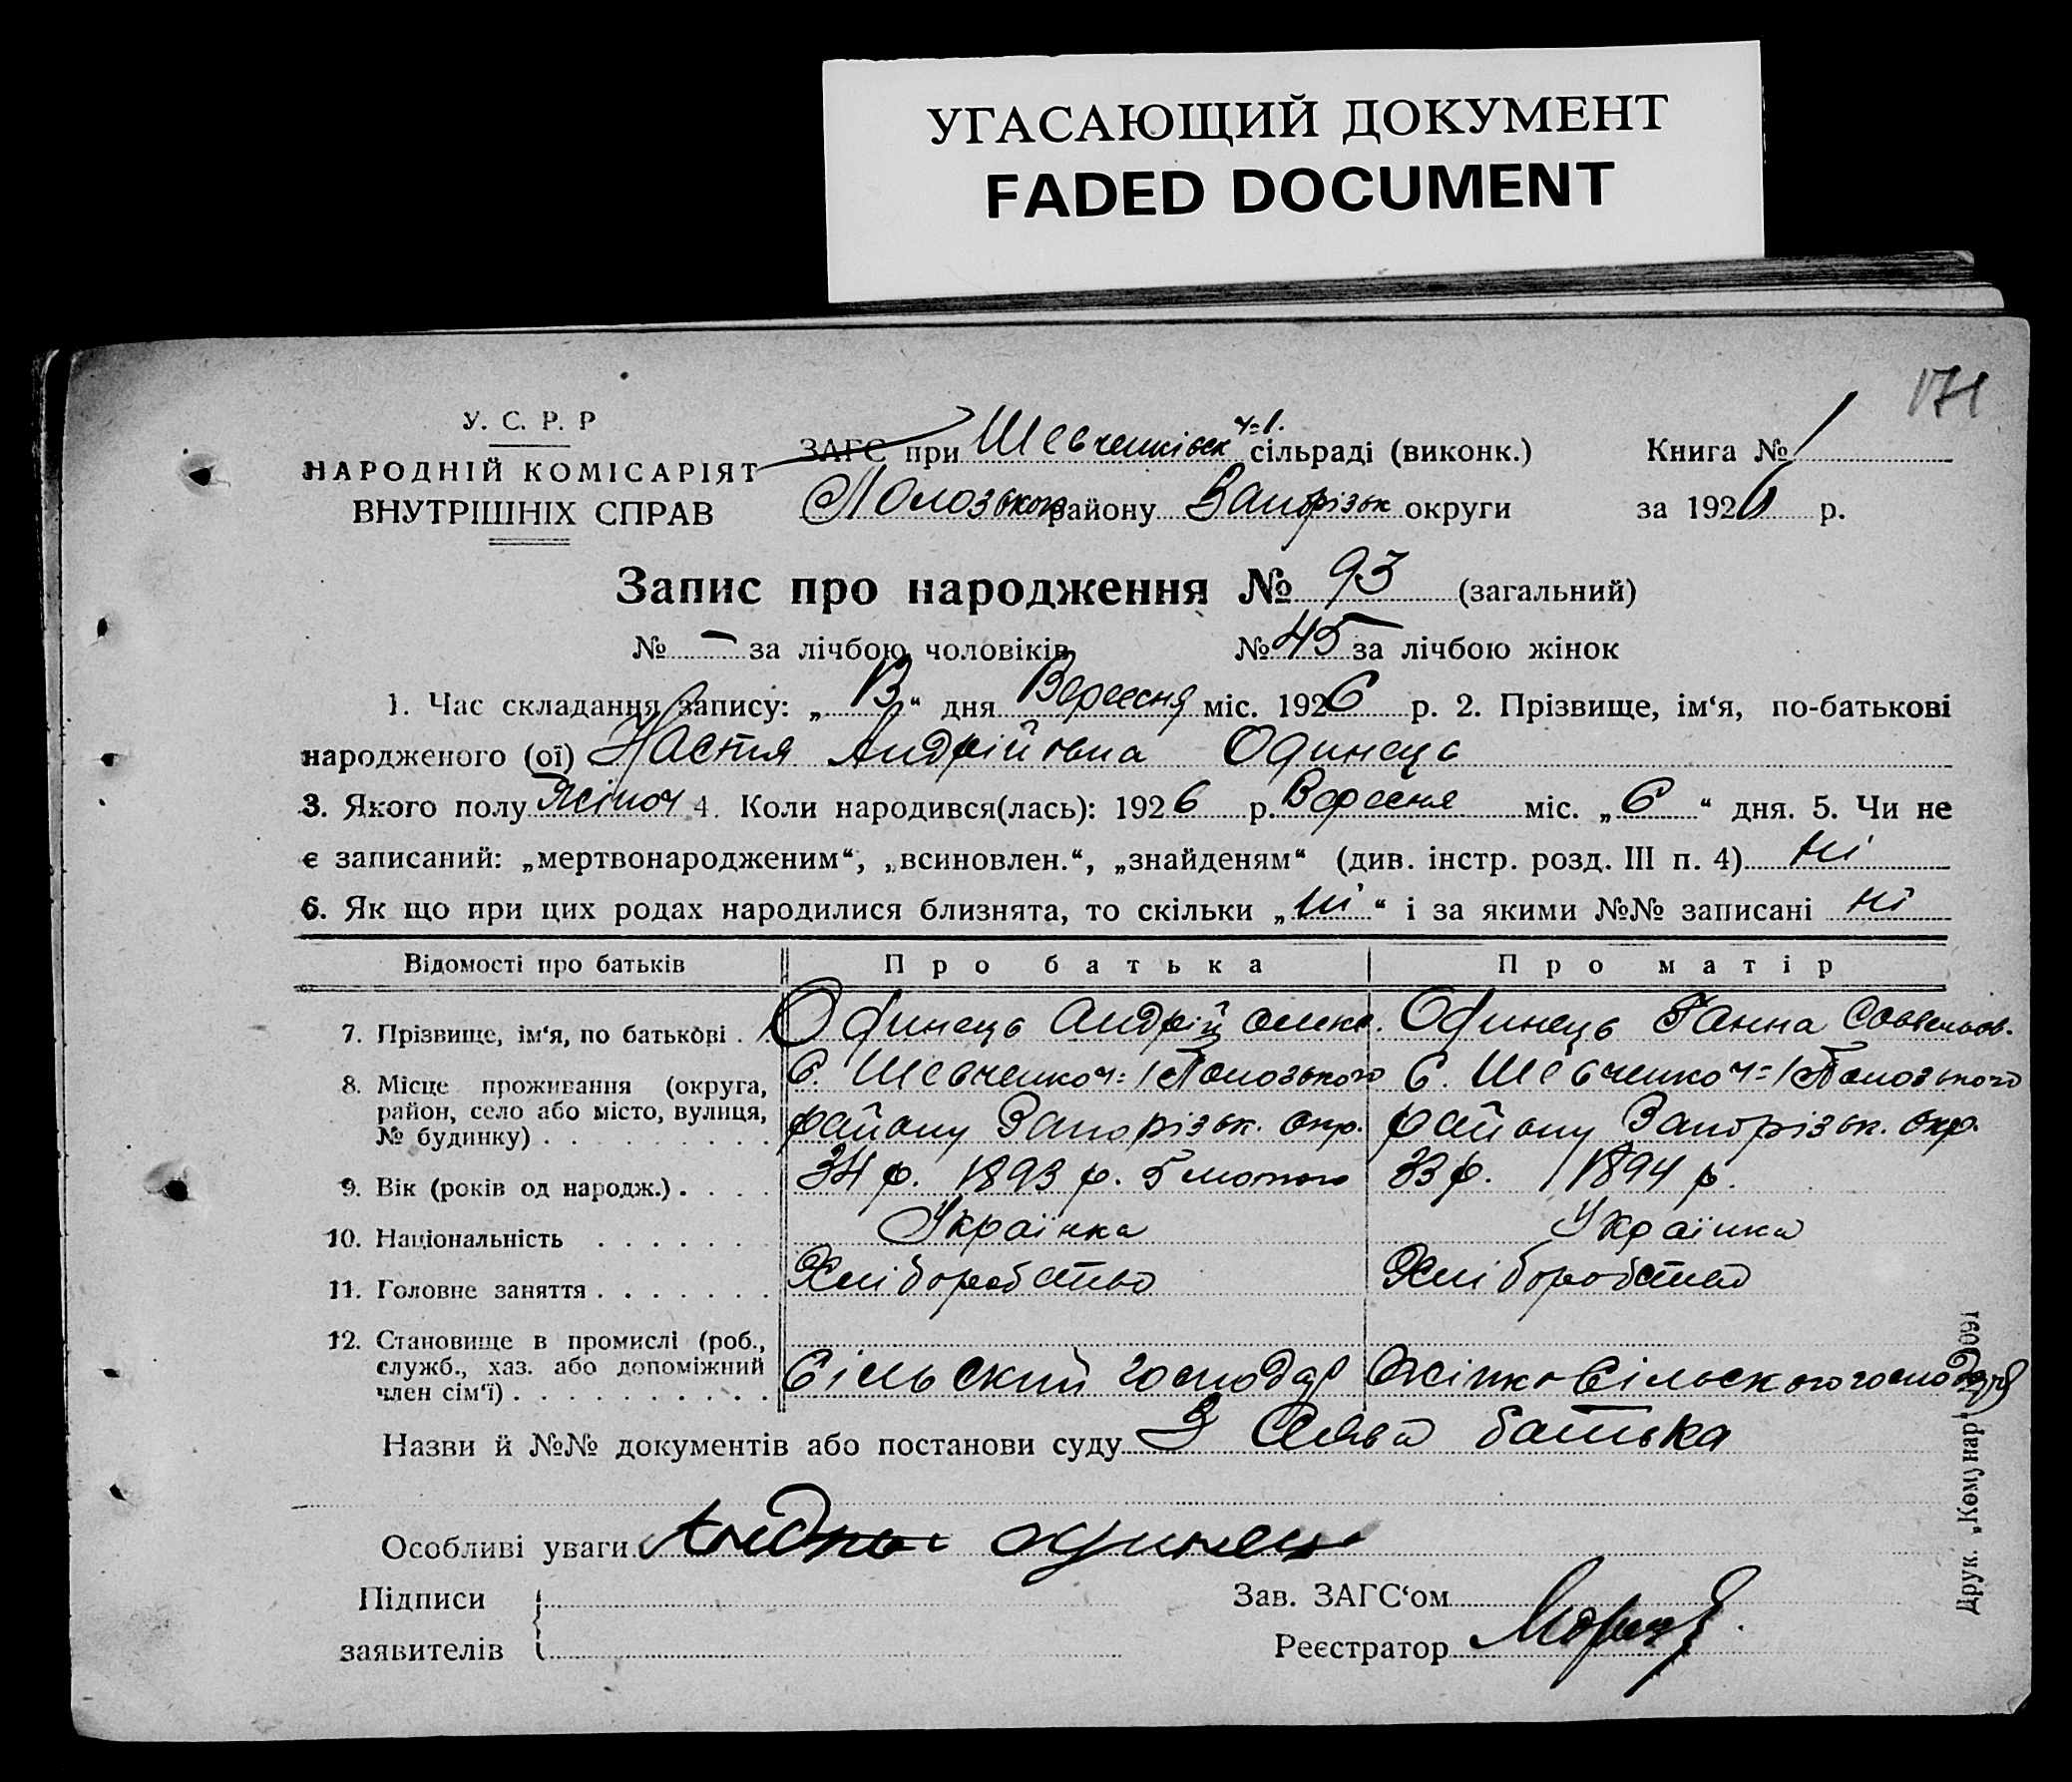 УГАСАЮЩИЙ ДОКУМЕНТ
FADED DOCUMENT
171
У. С. Р. Р
НАРОДНІЙ КОМІСАРІЯТ
ВНУТРІШНІХ СПРАВ
ЗАГС при Шевченківськ ч-1. сільраді (виконк.)
Пологзького району Запорізьк округи
Книга № 1
за 1926 р.
Запис про народження № 93 (загальний)
№ — за лічбою чоловіків № 45 за лічбою жінок
1. Час складання запису: „ “ дня Вересня міс. 1926 р. 2. Прізвище, ім‘я, по-батькові
народженого (ої) Настя Андрійовна Одинець
3. Якого полу Жіноч 4. Коли народився(лась): 1926 р. Вересня міс. „6“ дня. 5. Чи не
є записаний: „мертвонародженим“, „всиновлен.“, „знайденям“ (див. інстр. розд. III п. 4) ні
6. Як що при цих родах народилися близнята, то скільки „ні“ і за якими №№ записані ні
Відомості про батьків Про батька Про матір
7. Прізвище, ім‘я, по батькові . . Одинець Андрій Одинець Ганна
8. Місце проживання (округа, район, село або місто, вулиця, № будинку) . . . . . . . . .
С. Шевченко ч=1 Полозького
району Запорізьк. окр.
С. Шевченко ч=1 Полозького
району Запорізьк. окр.
9. Вік (років од народж.) . . . . 34 р. 1893 р. 5 лютого 33 р. 1894 р.
10. Національність . . . . . . . Українка Українка
11. Головне заняття . . . . . . . Хліборобство Хліборобство
12. Становище в промислі (роб., служб., хаз. або допоміжний член сім‘ї) . . . . . . . . . . .
Сільский господар Жінка Сільского господаря
Назви й №№ документів або постанови суду З слів батька
Особливі уваги Одинець
Підписи
заявителів
Зав. ЗАГС‘ом
Реєстратор
Друк. „Комунар“